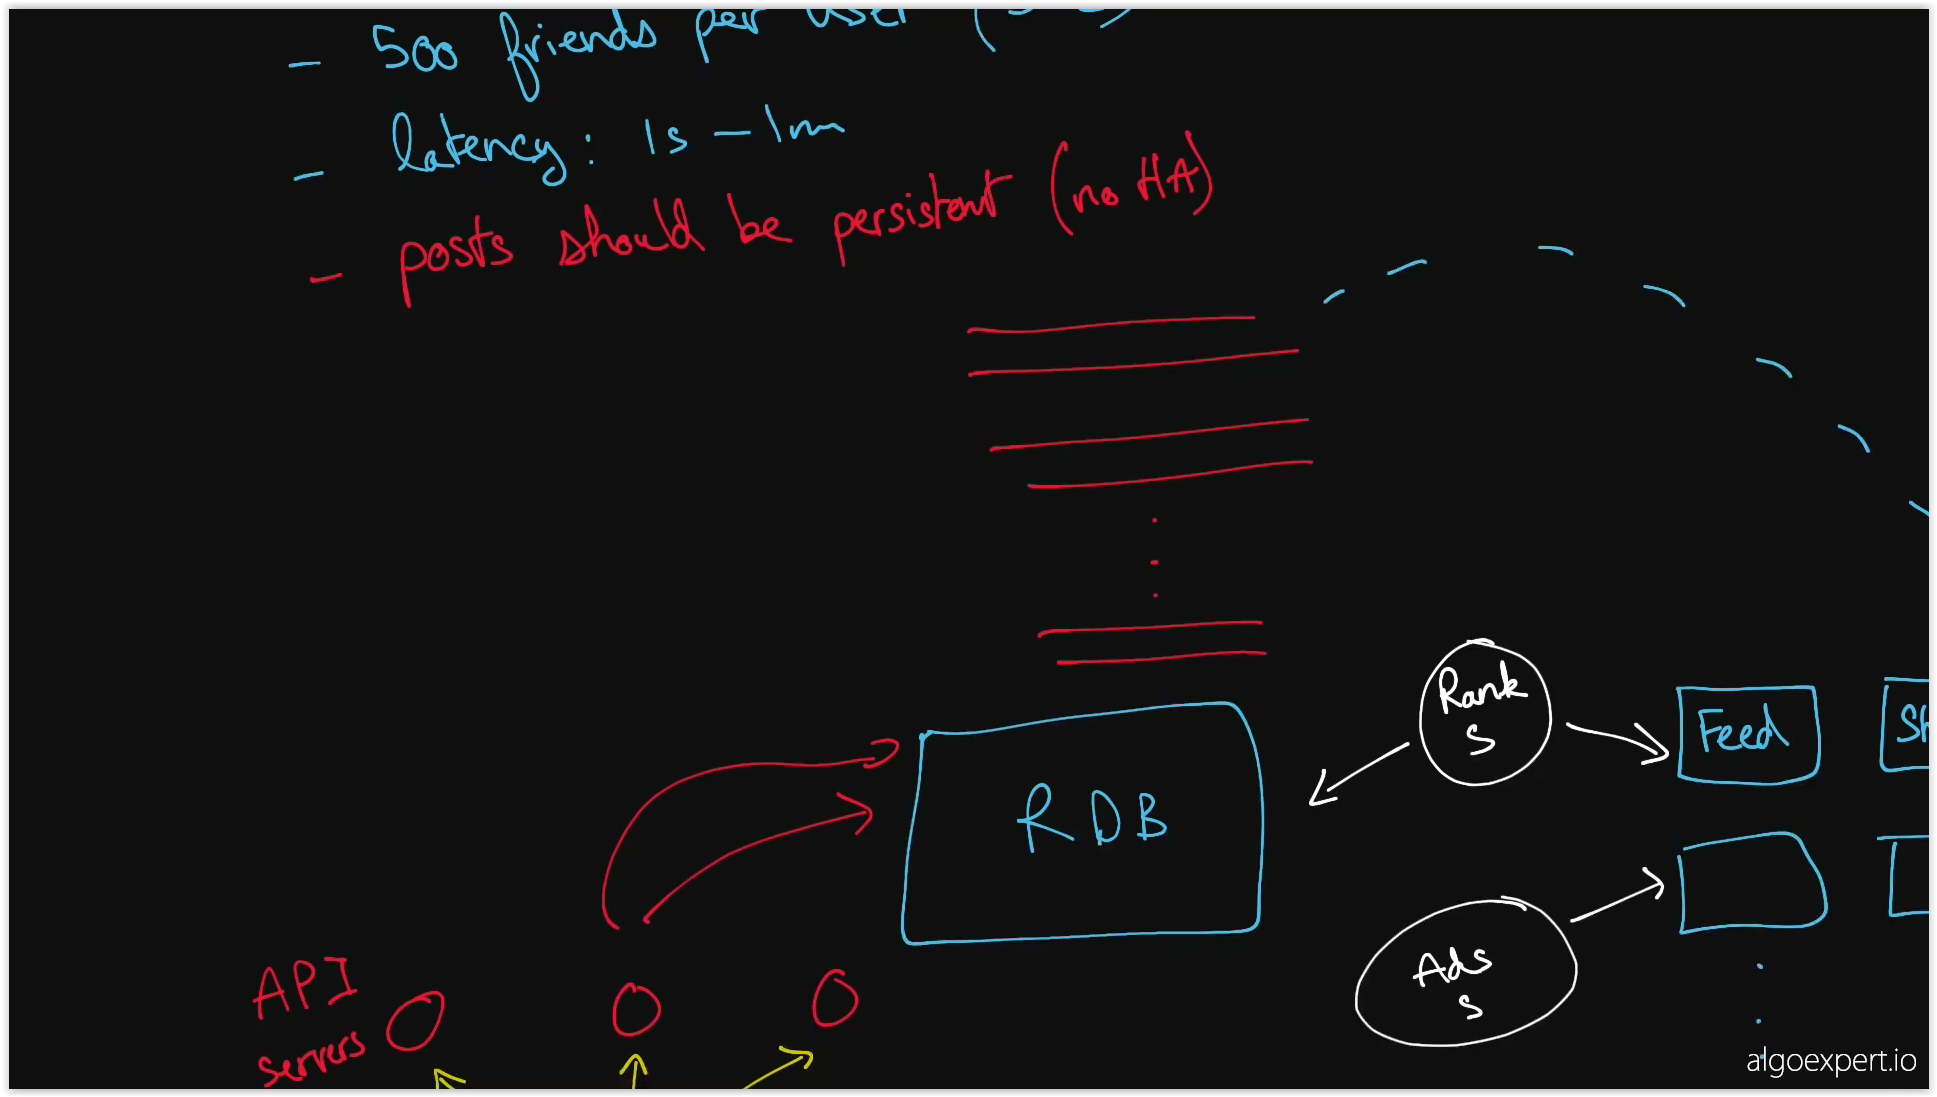 - 500 friends per user (
- latency: 1s - 1m
- posts should be persistent (no HA)
Rank
S
Feed
RDB
Ads
S
API
servers
algoexpert.io